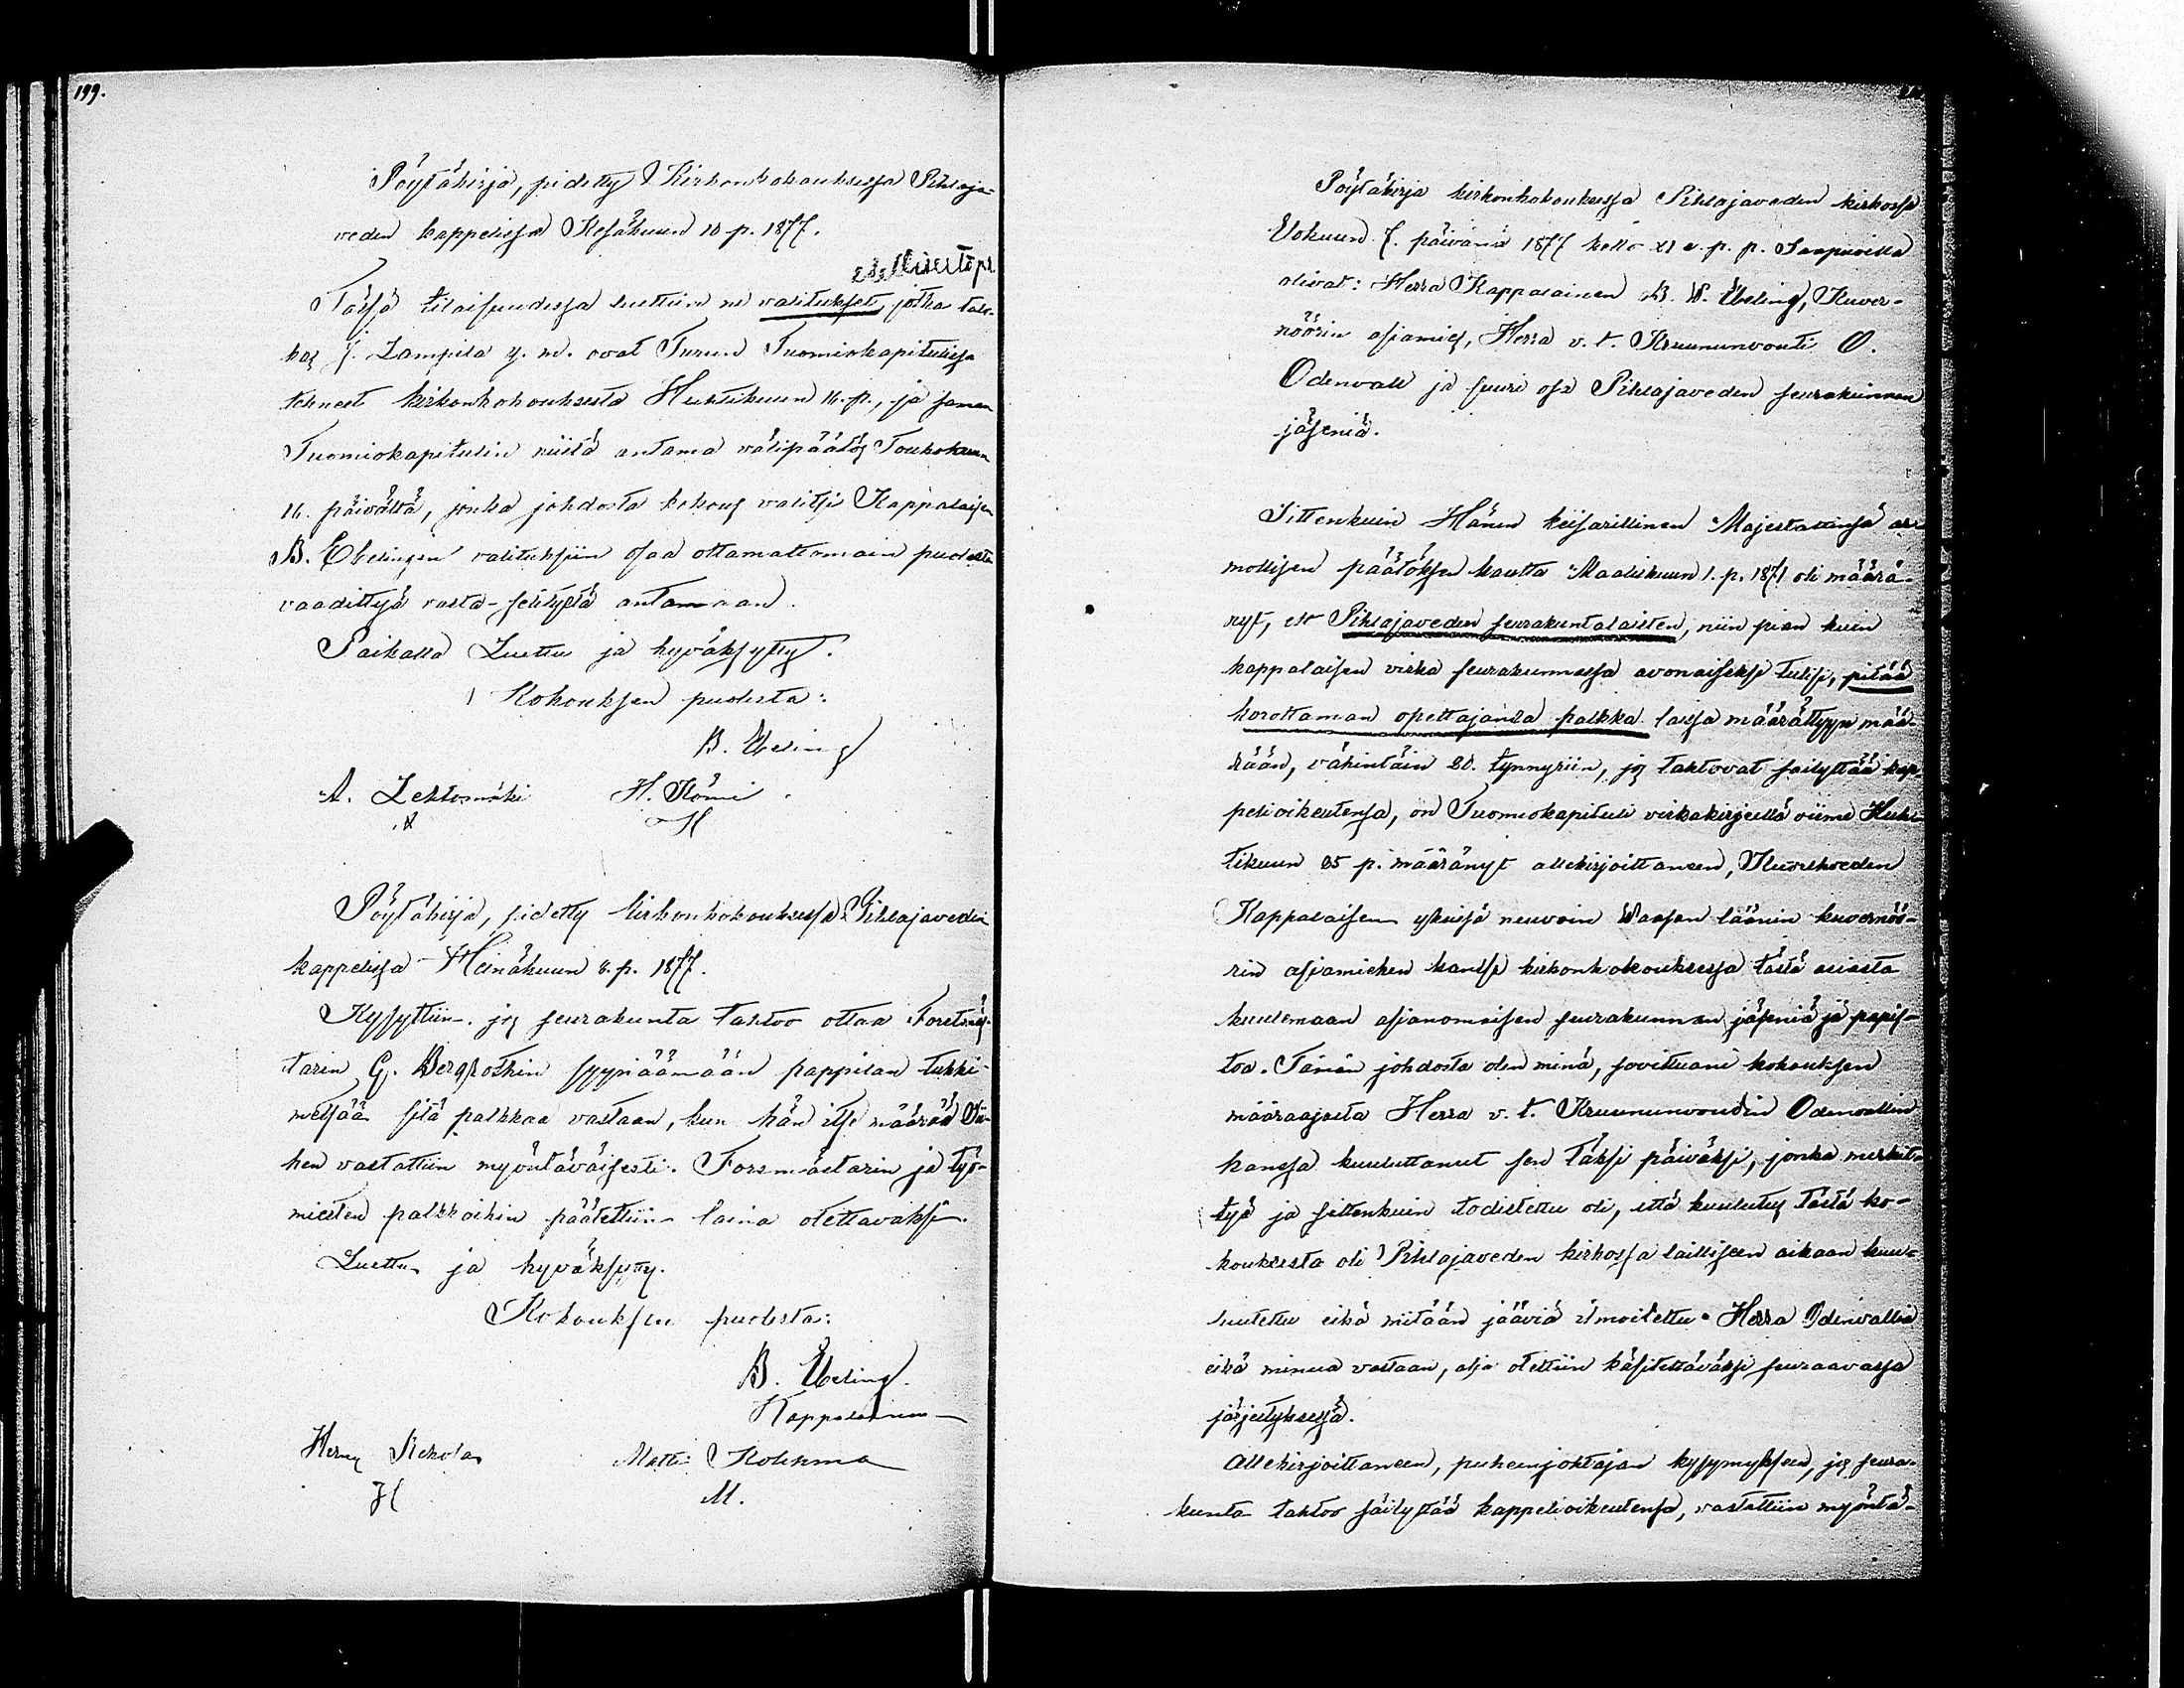 199.
Pöytäkirja, pidetty Kirkonkokouksessa Pihlaja-
veden kappelissa Kesäkuun 10 p. 1877.
Tässä tilaisuudessa luettiin ne valitukset, jotka talo-
kas J. Lampila y. m. ovat Turun Tuomiokapitulissa
tehneet kirkonkokouksesta Huhtikuun 16. p., ja saman
Tuomiokapitulin niistä antama välipäätös Toukokuun
16. päivältä, jonka johdosta kokous valitsi Kappalaisen
B. Ebelingin valituksiin osaa ottamattomain puolesta
vaadittua vasta-selitystä antamaan.
Paikalla Luettu ja hyväksytty.
Kokouksen puolesta:
B. Ebeling
A. Lehtomäki H. Kömi.
A H
Pöytäkirja, pidetty kirkonkokouksessa Pihlajaveden
kappelissa Heinäkuun 8. p. 1877.
Kysyttiin. jos seurakunta tahtoo ottaa Forstmäs-
tarin G. Bergrothin syyniäämään pappilan tukki-
metsää sitä palkkaa vastaan, kun hän itse määrää Sii-
hen vastattiin myöntäväisesti. Forsmästarin ja työ-
miesten palkkoihin päätettiin laina otettavaksi.
Luettu ja hyväksytty.
Kokouksen puolesta:
B. Ebeling.
Kappalainen
Herm Rekola Matti Kolkma
H M.
Pöytäkirja kirkonkokouksessa Pihlajaveden kirkossa
Elokuun 7. päivänä 1877 kello XI e. p. p. Saapuvilla
olivat: Herra Kappalainen B. W. Ebeling, Kuver-
nöörin asiamies, Herra v. t. Kruununvouti O.
Odenvall ja suuri osa Pihlajaveden seurakunnan
jäseniä.
Sittenkuin Hänen keisarillinen Majestatinsa ar-
mollisen päätöksen kautta Maaliskuun 1. p. 1871 oli määrä-
nyt, ett Pihlajaveden seurakuntalaisten, niin pian kuin
kappalaisen virka seurakunnassa avonaiseksi tulisi, pitää
korottaman opettajansa palkka laissa määrättyyn mää-
rään, vähintäin 20. tynnyriin, jos tahtovat säilyttää kap-
pelioikeutensa, on Tuomiokapituli virkakirjeellä viime Huh-
tikuun 25 p. määrännyt allekirjoittaneen, Kuoreveden
Kappalaisen yksissä neuvoin Waasan läänin kuvernöö-
rin asiamiehen kanssa kirkonkokouksessa tästä asiasta
kuulemaan asianomaisen seurakunnan jäseniä ja papis-
toa. Tämän johdosta olen minä, sovittuani kokouksen
määräajasta Herra v. t. Kruununvoudin Odenvallin
kanssa kuuluttanut sen täksi päiväksi, jonka merkit-
tyä ja sittenkuin todistettu oli, että kuulutus tästä ko-
kouksesta oli Pihlajaveden kirkossa lailliseen aikaan kuu-
lutettu eikä mitään jääviä ilmoitettu Herra Odenvallia
eikä minua vastaan, asia otettiin käsitettäväksi seuraavassa
järjestyksessä.
Allekirjoittaneen, puheenjohtajan kysymykseen, jos seura-
kunta tahtoo säilyttää kappelioikeutensa, vastattiin myöntä-